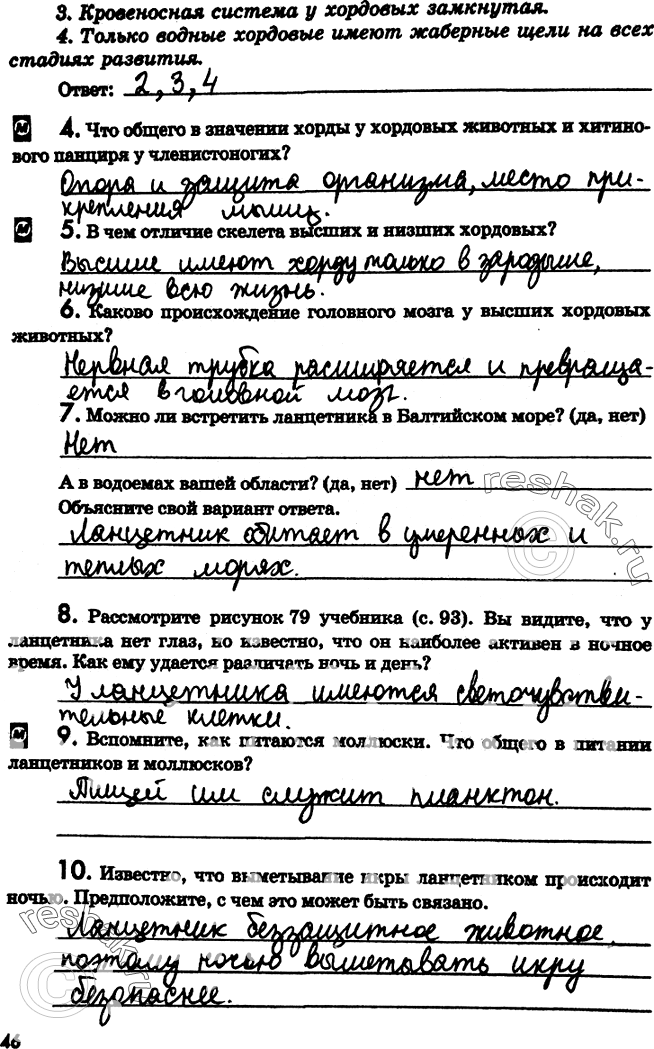 3. Кровеносная система у хордовых замкнутая.
4. Только водные хордовые имеют жаберные щели на всех
стадиях развития.
Ответ: 2, 3, 4
М 4. Что общего в значении хорды у хордовых животных и хитино-
вого панциря у членистоногих?
Опора и защита организма, место при-
крепления мышц.
М 5. В чем отличие скелета высших и низших хордовых?
Высшие имеют хорду только в зародыше,
низшие всю жизнь.
6. Каково происхождение головного мозга у высших хордовых
животных?
Нервная трубка расширяется и превраща-
ется в головной мозг.
7. Можно ли встретить ланцетника в Балтийском море? (да, нет)
Нет
А в водоемах вашей области? (да, нет) нет
Объясните свой вариант ответа.
Ланцетник обитает в умеренных и
теплых морях.
8. Рассмотрите рисунок 79 учебника (с. 93). Вы видите, что у
ланцетника нет глаз, но известно, что он наиболее активен в ночное
время. Как ему удается различать ночь и день?
У ланцетника имеются светочувстви-
тельные клетки.
М 9. Вспомните, как питаются моллюски. Что общего в питании
ланцетников и моллюсков?
Пищей им служит планктон.
10. Известно, что выметывание икры ланцетником происходит
ночью. Предположите, с чем это может быть связано.
Ланцетник беззащитное животное,
поэтому ночью выметывать икру
безопаснее.
46
reshak.ru
reshak.ru